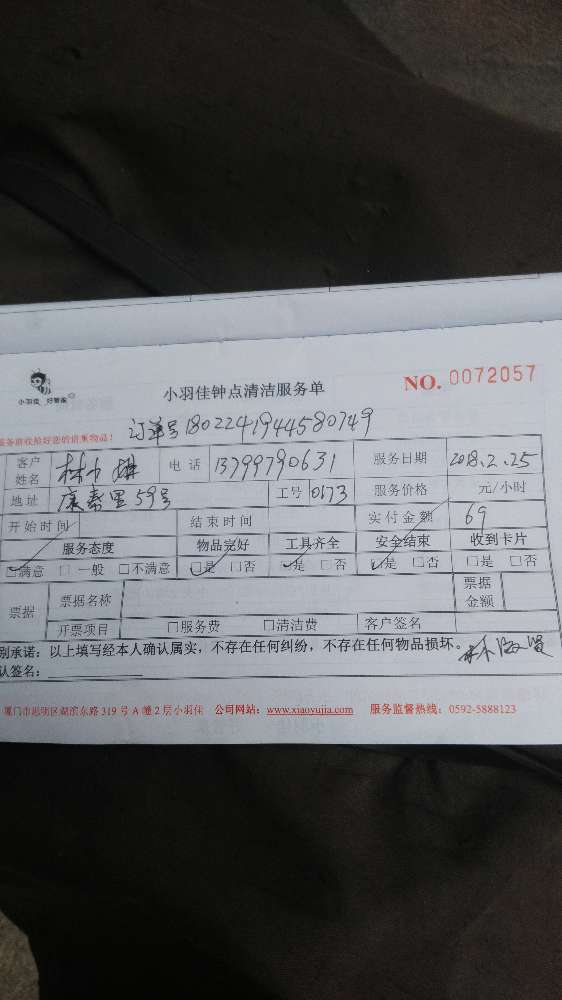 小羽佳 好管家
小羽佳钟点清洁服务单
NO. 0072057
订单号1802241944580749
服务前收拾好您的贵重物品！
客户姓名 林 电话 13799790631 服务日期 2018.2.25
地址 康泰里59号 工号 0173 服务价格 元/小时
开始时间 结束时间 实付金额 69
服务态度 物品完好 工具齐全 安全结束 收到卡片
□满意 □一般 □不满意 □是 □否 □是 □否 □是 □否 □是 □否
票据 票据名称 票据金额
开票项目 □服务费 □清洁费 客户签名
别承诺：以上填写经本人确认属实，不存在任何纠纷，不存在任何物品损坏。
认签名：
厦门市思明区湖滨东路 319 号 A 幢 2 层小羽佳 公司网站：www.xiaoyujia.com 服务监督热线：0592-5888123